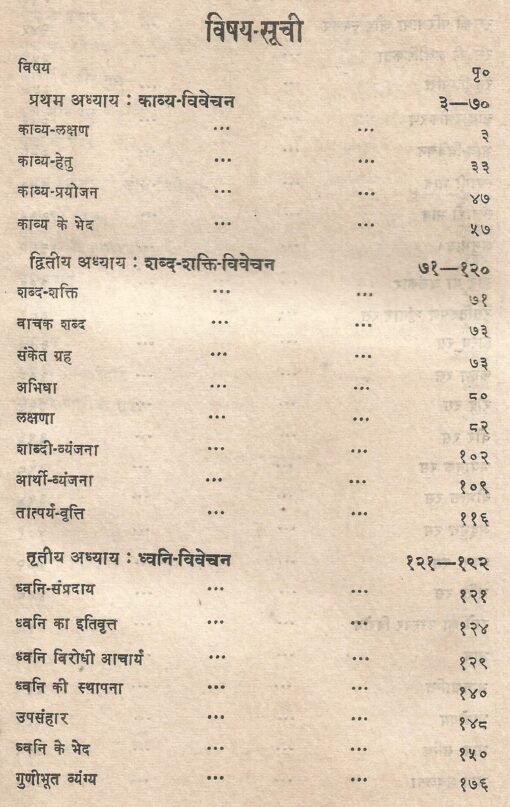 विषय-सूची
विषय पृ०
प्रथम अध्याय : काव्य-विवेचन ३—७०
काव्य-लक्षण ... ... ३
काव्य-हेतु ... ... ३३
काव्य-प्रयोजन ... ... ४७
काव्य के भेद ... ... ५७
द्वितीय अध्याय : शब्द-शक्ति-विवेचन ७१—१२०
शब्द-शक्ति ... ... ७१
वाचक शब्द ... ... ७३
संकेत ग्रह ... ... ७३
अभिधा ... ... ८०
लक्षणा ... ... ८२
शाब्दी-व्यंजना ... ... १०२
आर्थी-व्यंजना ... ... १०९
तात्पर्य-वृत्ति ... ... ११६
तृतीय अध्याय : ध्वनि-विवेचन १२१—१९२
ध्वनि-संप्रदाय ... ... १२१
ध्वनि का इतिवृत्त ... ... १२४
ध्वनि विरोधी आचार्य ... ... १२९
ध्वनि की स्थापना ... ... १४०
उपसंहार ... ... १४८
ध्वनि के भेद ... ... १५०
गुणीभूत व्यंग्य ... ... १७६